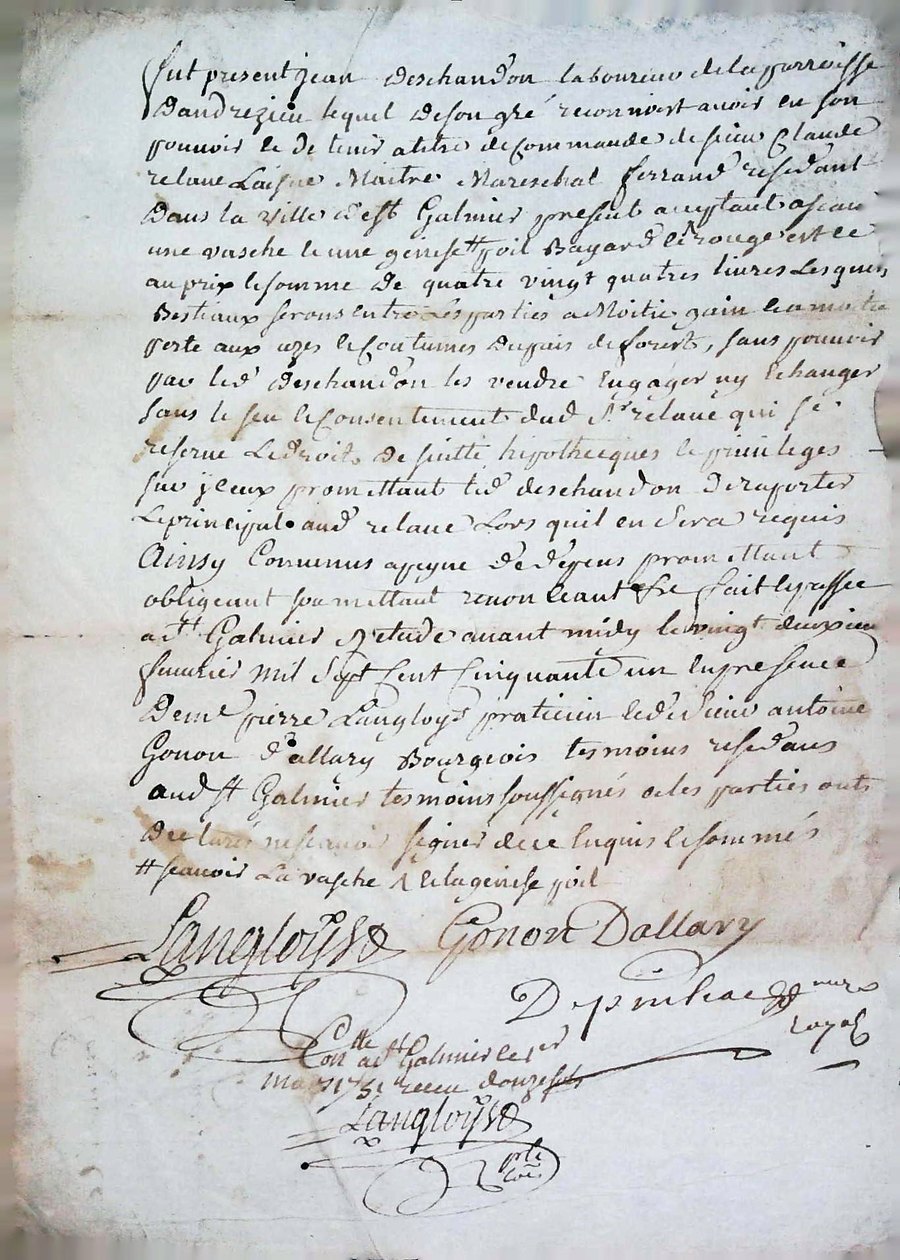 fut present jean deschandon laboureur de la parroisse
Dandrezieu lequel de son gré reconnoist avoir en son
pouvoir & detenir a titre de commande de sieur Claude
relave Laisne Maitre Mareschal ferrand residant
dans la ville de st Galmier present acceptant ascavoir
une vasche & une genise # poil Bayard & rouge est &
au prix & somme de quatre vingt quatres livres Lesquels
Bestiaux seront entre Les parties a Moitie gain &
perte aux uzes & coutumes du pais de forest, sans pouvoir
par led deschandon les vendre Engager ny Echanger
sans le seu & consentement dud Sr relave qui se
reserve Le droit de suitte hipothecques & privileges
sur jceux promettant led deschandon de raporter
Le principal aud relave Lors quil en sera requis
Ainsy Convenus a peyne de depens promettant
obligeant soumettant renonceant &c fait & passée
a st Galmier Estude avant midy le vingt deuxieme
fevrier mil sept Cent Cinquante un en presence
de me pierre Langloys praticien & de sieur antoine
Gonon d'allary Bourgeois tesmoins residans
aud st Galmier tesmoins soussignés & les parties onts
declarés ne scavoir signer de ce enquis & sommés
# scavoir La vasche & la genise poil
Langloys Gonon Dallary
nore
royal
Con lle a st Galmier le 1er
mars 1751 receu douze sols
Langloys